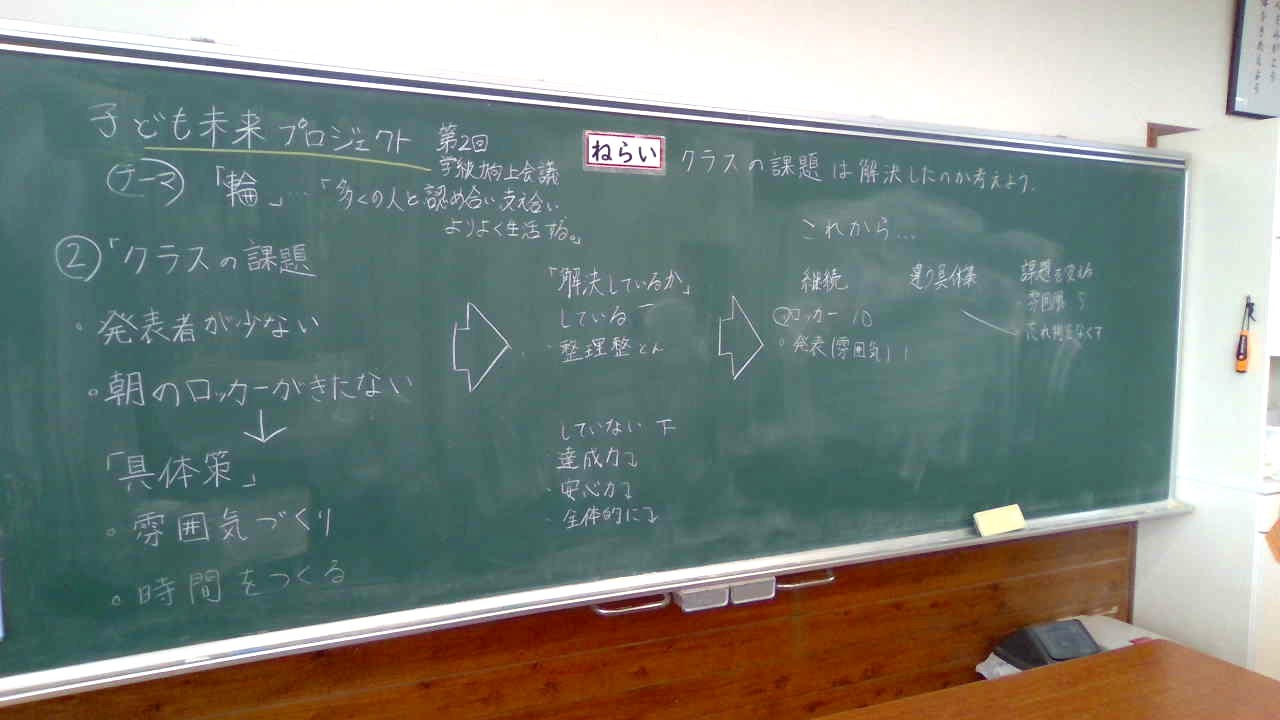 子ども未来プロジェクト
第2回
学級力向上会議
テーマ 「輪」…「多くの人と認め合い支え合い
よりよく生活する。」
ねらい クラスの課題は解決したのか考えよう.
② 「クラスの課題
・発表者が少ない
・朝のロッカーがきたない
↓
「具体策」
・雰囲気づくり
・時間をつくる
「解決しているか」
している
・整理整とん
していない 下
・達成力↓
・安心力↓
・全体的に↓
これから…
継続
ロッカー 10
・発表(雰囲気) 11
違う具体策
課題を変える
・雰囲気 5
・忘れ物をなくす